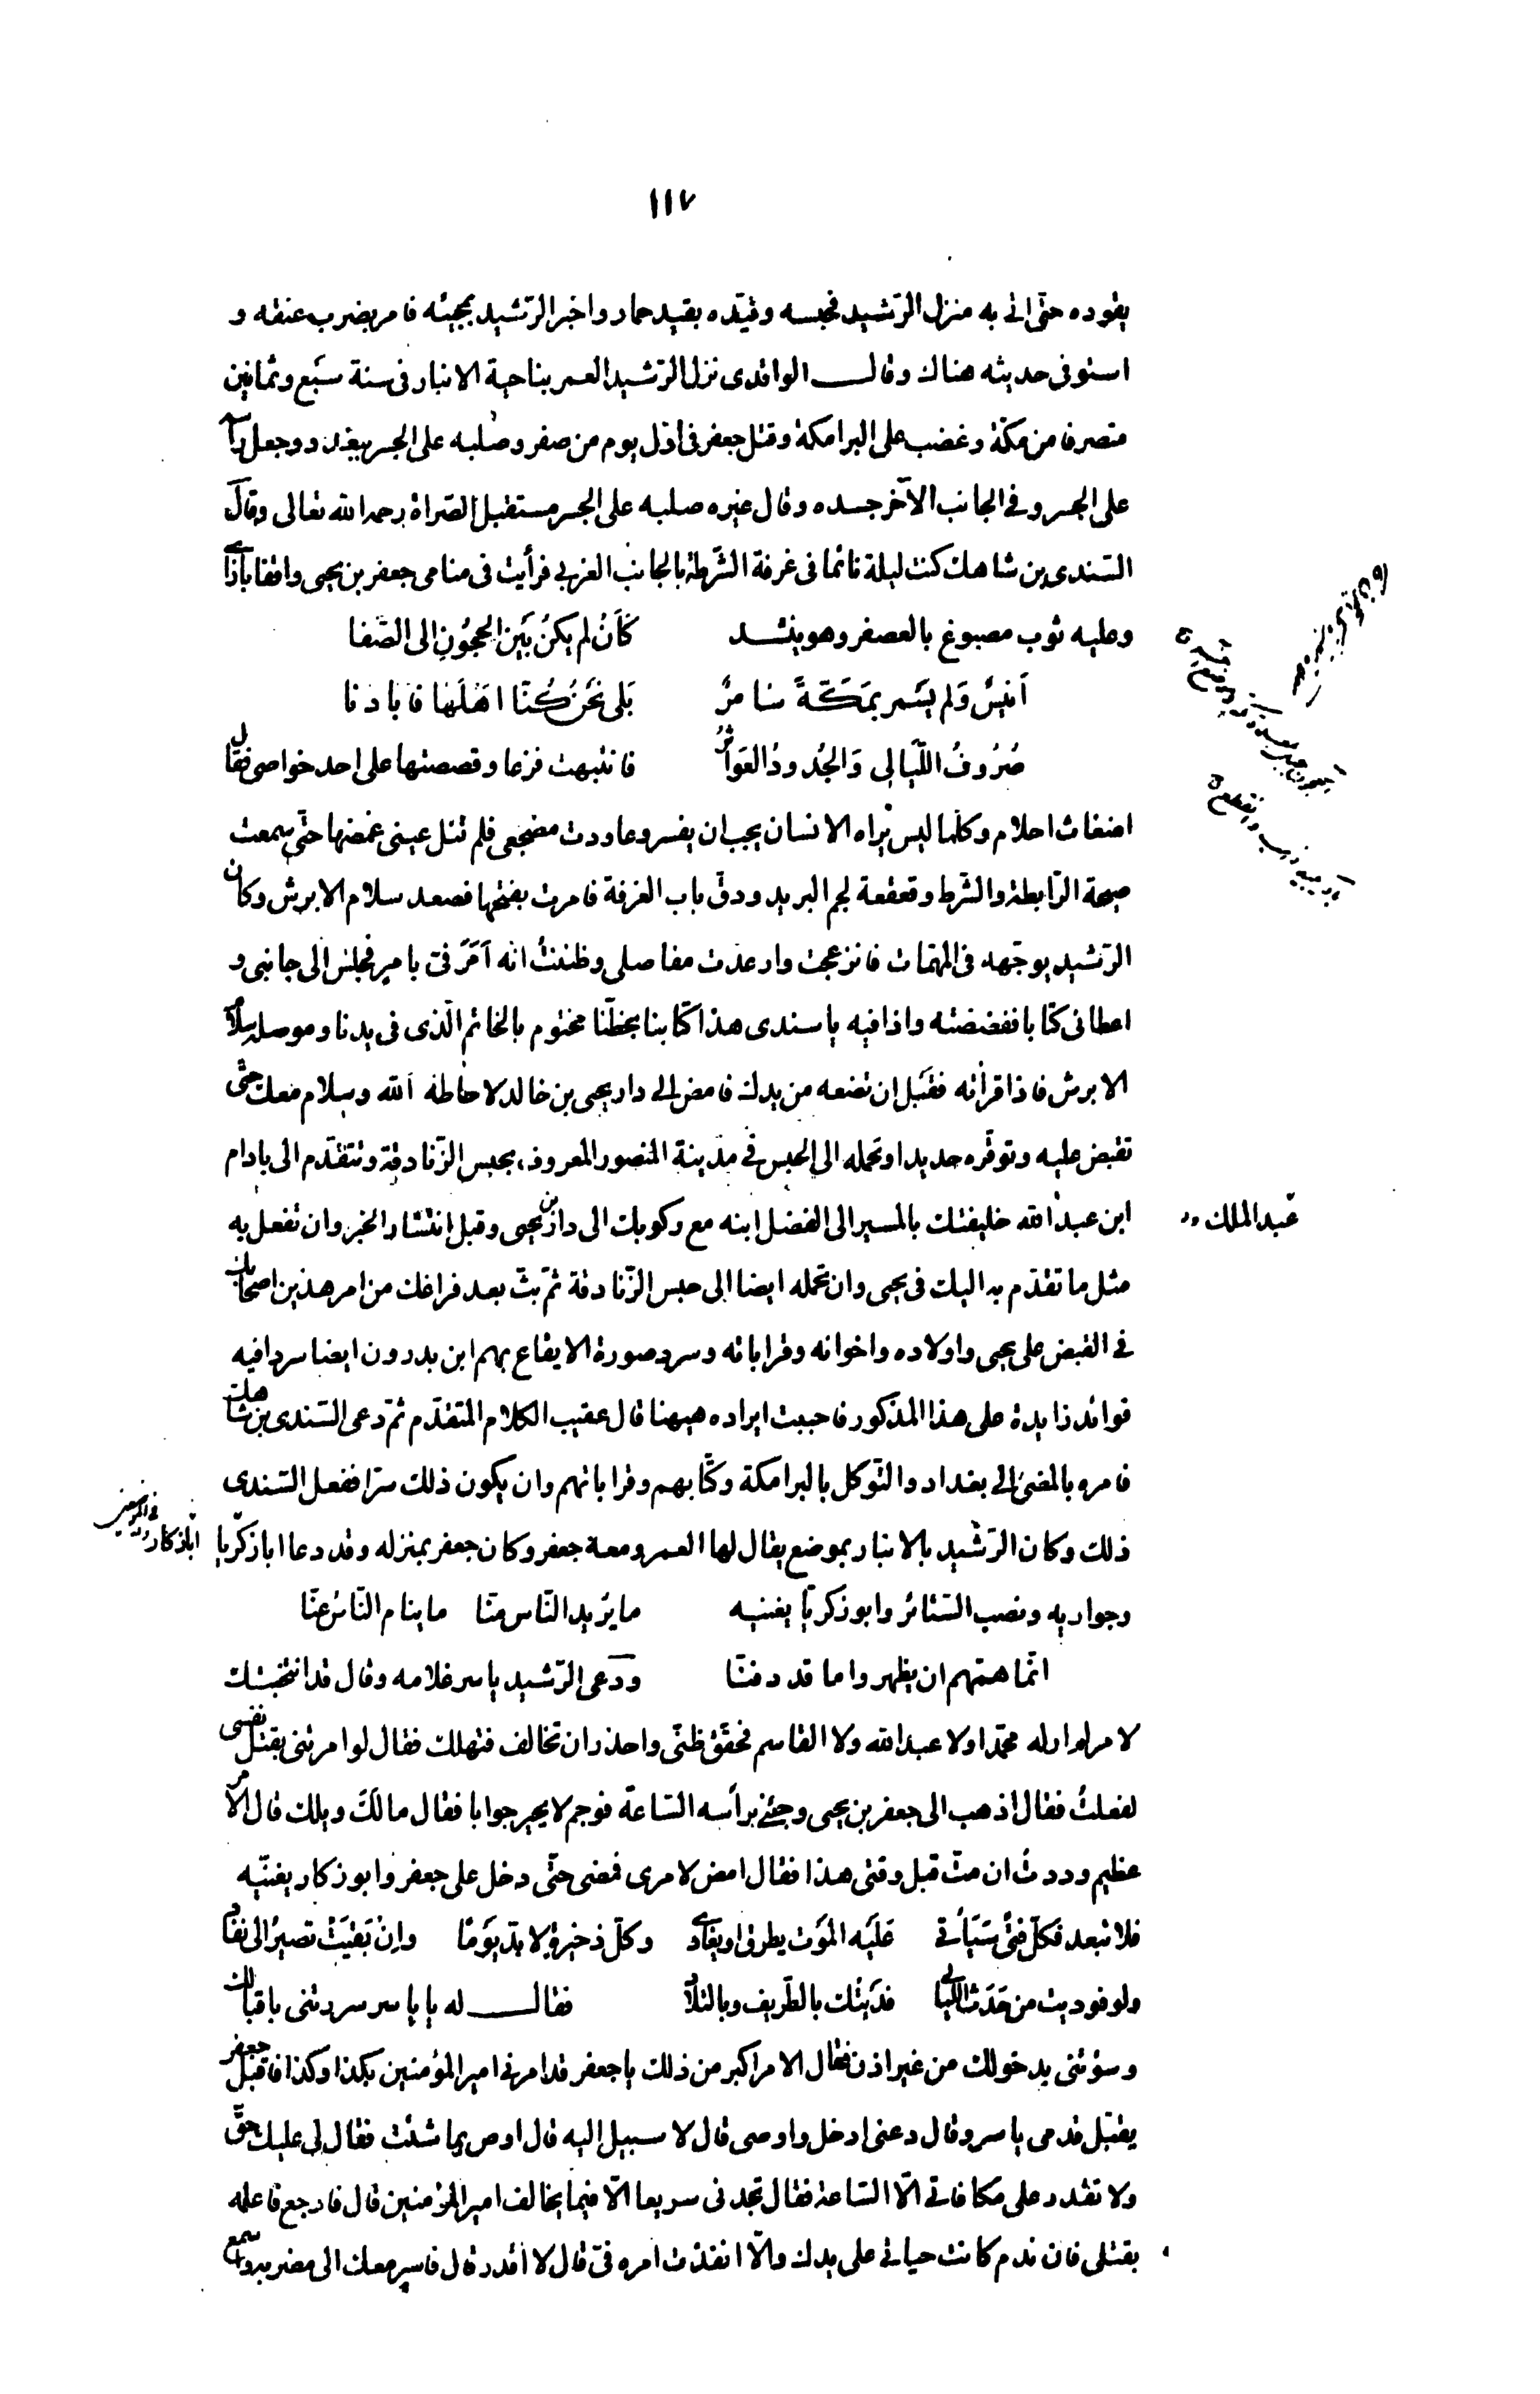 ١١٧
يقوده حتى اتى به منزل الرّشيد فحبسه وقيّده بقيد حمار واخبر الرّشيد بمجيئه فامر بضرب عنقه و
استوفى حديثه هناك وقال الواقدى نزل الرّشيد العمر بناحية الانبار فى سنة سبع وثمانين
متصرفا من مكّة وغضب على البرامكة وقتل جعفر فى اوّل يوم من صفر وصلبه على الجسر ببغداد وجعل رأسه
على الجسر وفى الجانب الآخر جسده وقال غيره صلبه على الجسر مستقبل الصّراة رحمه الله تعالى وقال
السّندى بن شاهك كنت ليلة نائما فى غرفة الشّرطة بالجانب الغربى فرأيت فى منامى جعفر بن يحيى واقفا بازائى
وعليه ثوب مصبوغ بالعصفر وهو ينشد كَأَنْ لم يكنْ بَيْن الحجُونِ الى الصّفا
اَنيسٌ وَلم يَسْمر بمَكَّةَ سَامرٌ بَلى نَحْنُ كُنّا اهْلَها فَابادنا
صُرُوفُ اللّيَالى وَالجُدودُ العَواثرُ فانتبهت فزعا وقصصتها على احد خواصى فقال
اضغاث احلام وكلّما ليس يراه الانسان يجب ان يفسر وعاودت مضجعى فلم تنل عينى غمضها حتّى سمعت
صيحة الرّابطة والشّرط وقعقعة لجم البريد ودقّ باب الغرفة فامرت بفتحها فصعد سلام الابرش وكان
الرّشيد يوجّهه فى المهمّات فانزعجت وارعدت مفاصلى وظننتُ انه اَمَرَ فىّ بامير فجلس الى جانبى و
اعطانى كتابا ففضضته واذا فيه ياسندى هذا كتابنا بخطّنا مختوم بالخاتم الّذى فى يدنا وموصله سلام
الابرش فاذا قرأته فقبل ان تضعه من يدك فامض الى دار يحيى بن خالد لا حاطه الله وسلام معك حتّى
تقبض عليه وتوقّره حديدا وتحمله الى الحبس فى مدينة المنصور المعروف بحبس الزّنادقة وتتقدّم الى بادام
ابن عبد الله خليفتك بالمسير الى الفضل ابنه مع ركوبك الى دار بن يحيى وقبل انتشار الخبر وان تفعل به
عبد الملك
مثل ما تقدّم به اليك فى يحيى وان تحمله ايضا الى حبس الزّنادقة ثمّ بثّ بعد فراغك من امر هذين اصحابك
فى القبض على يحيى واولاده واخوانه وقراباته وسرد صورة الايقاع بهم ابن بدرون ايضا سردا فيه
فوائد زايدة على هذا المذكور فاحببت ايراده هيهنا قال عقيب الكلام المتقدّم ثمّ دعى السّندى بن شاهك
فامره بالمضى الى بغداد والتّوكل بالبرامكة وكتّابهم وقراباتهم وان يكون ذلك سرّا ففعل السّندى
ذلك وكان الرّشيد بالانبار بموضع يقال لها العمر ومعه جعفر وكان جعفر بمنزله وقد دعا ابا زكريا
وجواريه ونصب السّتائر وابو زكريّا يغنيه ما يريد النّاس منّا ما ينام النّاس عنّا
انّما همّهم ان يظهروا ما قد دفنّا ودعى الرّشيد ياسر غلامه وقال قد انتخبتك
لامر لم ار له محمّدا ولا عبد الله ولا القاسم فحقّق ظنّى واحذر ان تخالف فتهلك فقال لو امرتنى بقتل نفسى
لفعلتُ فقال اذهب الى جعفر بن يحيى وجئنى برأسه السّاعة فوجم لا يحير جوابا فقال مالَكَ ويلك قال الامر
عظيم وددتُ ان متّ قبل وقتى هذا فقال امض لامرى فمضى حتّى دخل على جعفر وابو زكار يغنّيه
فلا تبعد فكلّ فتًى سَيَأتى عَلَيه المَوْت يطرق او يغادى وكلّ ذخيرة لابدّ يَوْمًا وانْ بَقيَتْ تصيرُ الى نفاد
ولو فوديت من حَدَث اللّيالى فدَيتك بالطّريف وبالتّلاد فقال له يا ياسر سررتنى باقبالك
وسؤتنى بدخولك من غير اذن فقال الامر اكبر من ذلك يا جعفر قد امرنى امير المؤمنين بكذا وكذا فاقبل جعفر
يقبّل قدمى ياسر وقال دعنى ادخل واوصى قال لا سبيل اليه قال اوص بما شئت فقال لى عليك حقّ
ولا تقدر على مكافاتى الّا السّاعة فقال تجدنى سريعا الّا فيما يخالف امير المؤمنين قال فارجع فاعلمه
بقتلى فان ندم كانت حياتى على يدك والّا انفذت امره فىّ قال لا اقدر قال فاسير معك الى مضربه واسمع